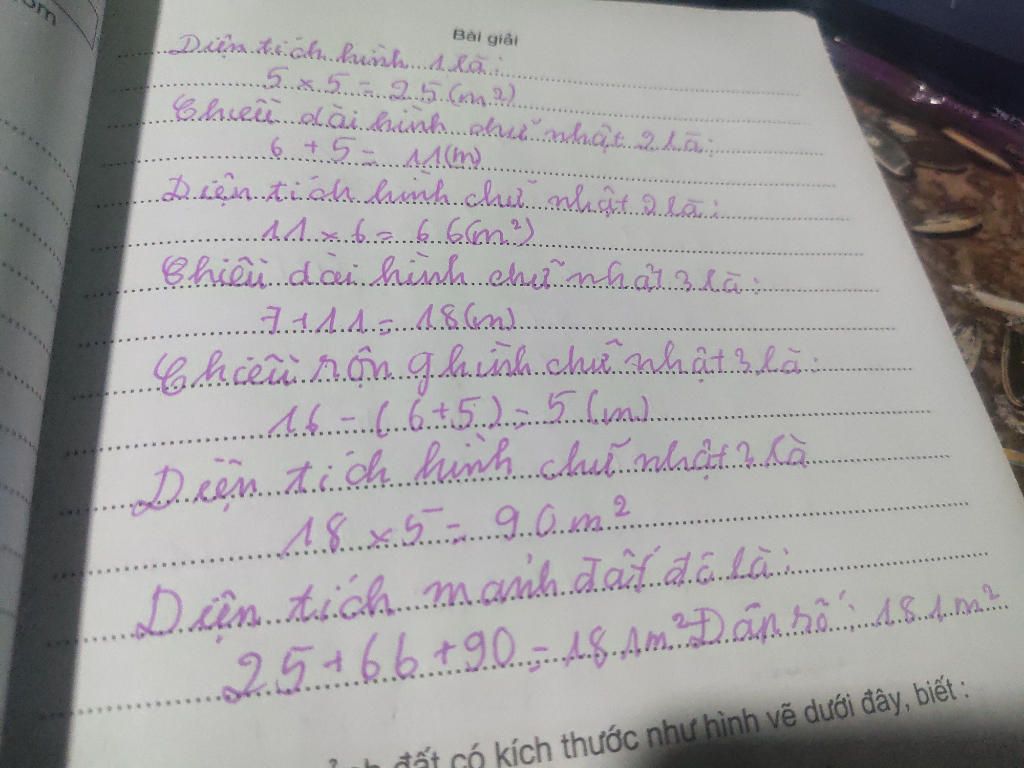 om
Bài giải
Diện tích hình 1 là:
5 × 5 = 25 (m²)
Chiều dài hình chữ nhật 2 là:
6 + 5 = 11 (m)
Diện tích hình chữ nhật 2 là:
11 × 6 = 66 (m²)
Chiều dài hình chữ nhật 3 là:
7 + 11 = 18 (m)
Chiều rộng hình chữ nhật 3 là:
16 - (6 + 5) = 5 (m)
Diện tích hình chữ nhật 3 là
18 × 5 = 90 m²
Diện tích mảnh đất đó là:
25 + 66 + 90 = 181 m² Đán số: 181 m²
đất có kích thước như hình vẽ dưới đây, biết :